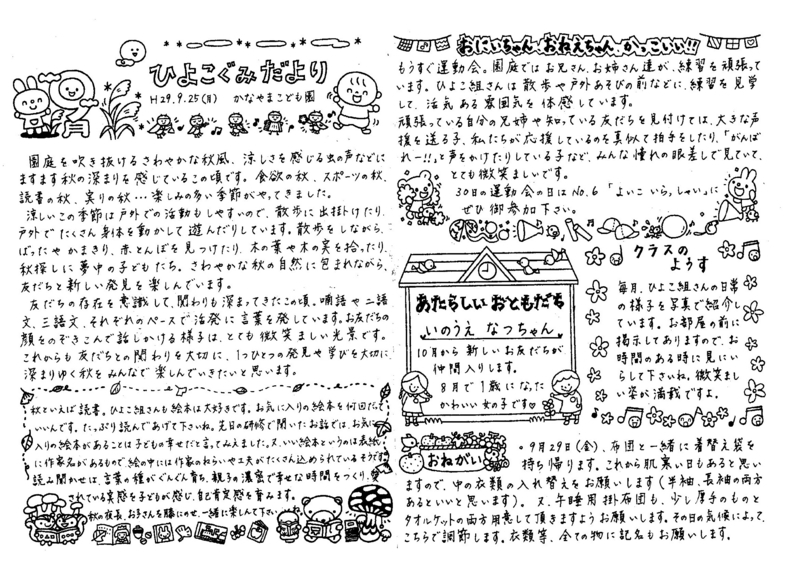 ひよこぐみだより
H29.9.25(月) かなやまこども園
園庭を吹き抜けるさわやかな秋風、涼しさを感じる虫の声などに
ますます秋の深まりを感じているこの頃です。食欲の秋、スポーツの秋、
読書の秋、実りの秋…楽しみの多い季節がやってきました。
涼しいこの季節は戸外での活動もしやすいので、散歩に出掛けたり、
戸外でたくさん身体を動かして遊んだりしています。散歩をしながら、
ばったやかまきり、赤とんぼを見つけたり、木の葉や木の実を拾ったり、
秋探しに夢中の子どもたち。さわやかな秋の自然に包まれながら、
友だちと新しい発見を楽しんでいます。
友だちの存在を意識して、関わりも深まってきたこの頃。喃語や二語
文、三語文、それぞれのペースで活発に言葉を発しています。お友だちの
顔をのぞきこんで話しかける様子は、とても微笑ましい光景です。
これからも友だちとの関わりを大切に、1つひとつの発見や学びを大切に、
深まりゆく秋をみんなで楽しんでいきたいと思います。
秋といえば読書。ひよこ組さんも絵本は大好きです。お気に入りの絵本を何回だって
いいんです。たっぷり読んであげて下さいね。先日の研修で聞いたお話では、お気に
入りの絵本があることは子どもの幸せだと言ってみえました。又、いい絵本というのは表紙
に作家名があるもので、絵の中には作家のねらいや工夫がたくさん込められているそうです。
読み聞かせは、言葉の種がぐんぐん育ち、親子の濃密で幸せな時間をつくり、愛
されている実感を子どもが感じ、自己肯定感を育みます。
秋の夜長、お子さんを膝にのせ、一緒に楽しんで下さいね
おにいちゃん おねえちゃん かっこいい!!
もうすぐ運動会。園庭ではお兄さん、お姉さん達が、練習を頑張って
います。ひよこ組さんは散歩や戸外あそびの前などに、練習を見学
して、活気ある雰囲気を体感しています。
頑張っている自分の兄姉や知っている友だちを見付けては、大きな声
援を送る子、私たちが応援しているのを真似て拍手をしたり、「がんば
れー!!」と声をかけたりしている子など、みんな憧れの眼差しで見ていて、
とても微笑ましいです。
30日の運動会の日はNo.6「よいこいらっしゃい」に
ぜひ御参加下さい。
あたらしいおともだち
いのうえ なつちゃん
10月から新しいお友だちが
仲間入りします。
8月で1歳になった
かわいい女の子です♡
クラスの
ようす
毎月、ひよこ組さんの日常
の様子を写真で紹介し
ています。お部屋の前に
掲示してありますので、お
時間のある時に見にい
らして下さいね。微笑まし
い姿が満載ですよ。
おねがい
・9月29日(金)、布団と一緒に着替え袋を
持ち帰ります。これから肌寒い日もあると思い
ますので、中の衣類の入れ替えをお願いします(半袖、長袖の両方
あるといいと思います)。又、午睡用掛布団も、少し厚手のものと
タオルケットの両方用意して頂きますようお願いします。その日の気候によって、
こちらで調節します。衣類等、全ての物に記名もお願いします。